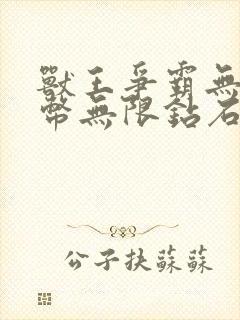 獸王爭霸無
幣無限鉆石
公子扶蘇蘇